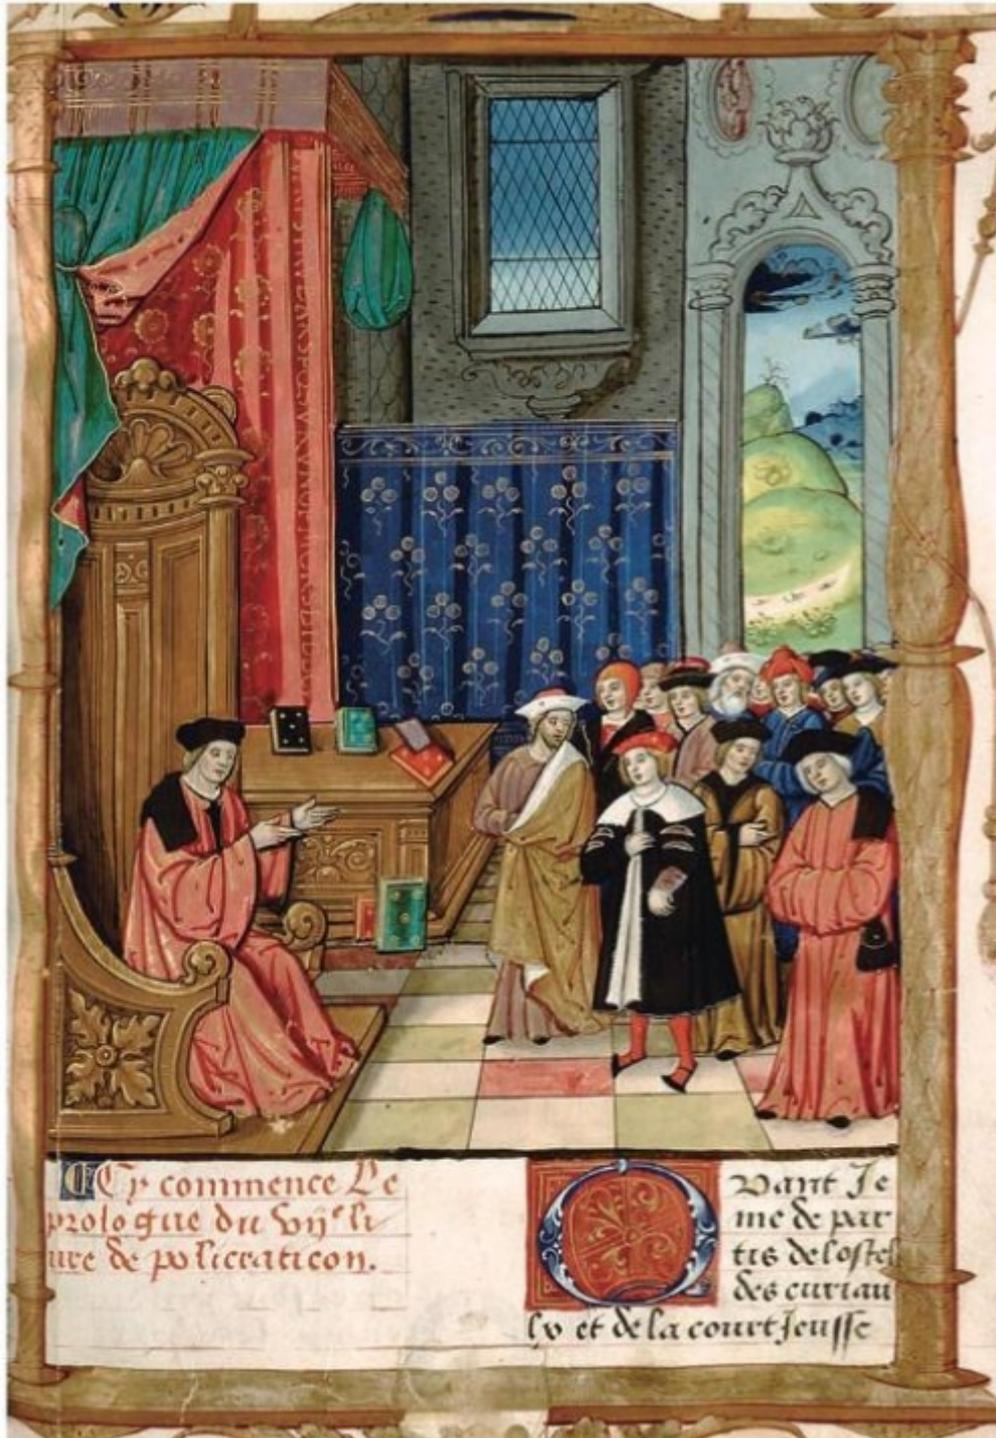 Cy commence le
prologue du vije li
ure de policraticon.
Quant Je
me de par
tis de lostel
des curiau
lx et de la court Jeusse